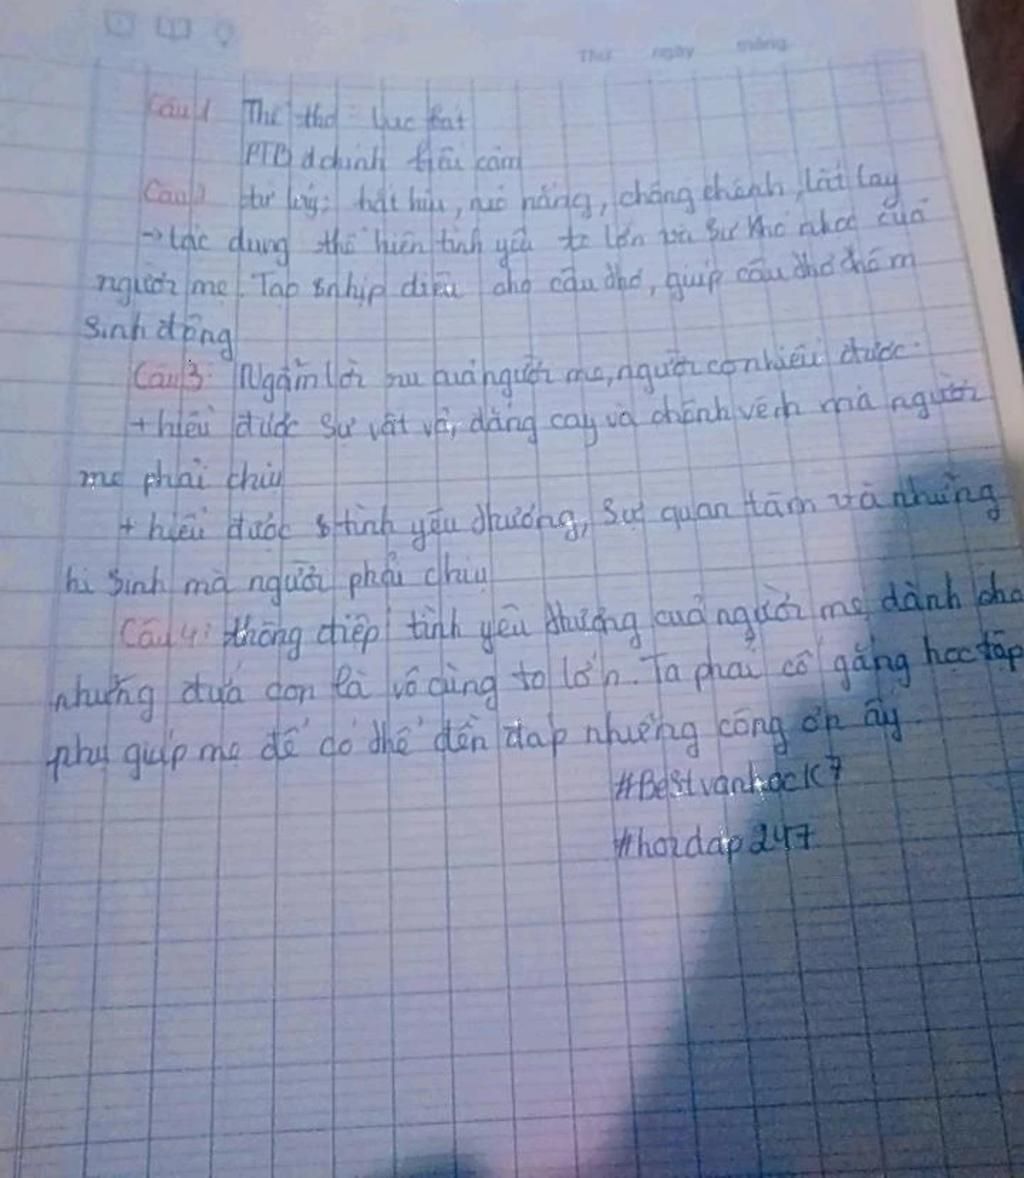 Thứ ngày tháng
Câu 1 Thể thơ: lục bát
PTBĐ chính biểu cảm
Câu 2 từ láy: hắt hiu, nỏ nắng, chông chênh, lắt lay
→ tác dụng thể hiện tình yêu to lớn và sự khó nhọc của
người mẹ. Tạo nhịp điệu cho câu thơ, giúp câu thơ thêm
sinh động
Câu 3: Ngẫm lời ru của người mẹ, người con hiểu được:
+ hiểu được sự vất vả, đắng cay và chênh vênh mà người
mẹ phải chịu
+ hiểu được tình yêu thương, sự quan tâm và những
hi sinh mà người phải chịu
Câu 4: thông điệp tình yêu thương của người mẹ dành cho
những đứa con là vô cùng to lớn. Ta phải cố gắng học tập
phụ giúp mẹ để có thể đền đáp những công ơn ấy.
#Bestvanhock7
#hoidap247